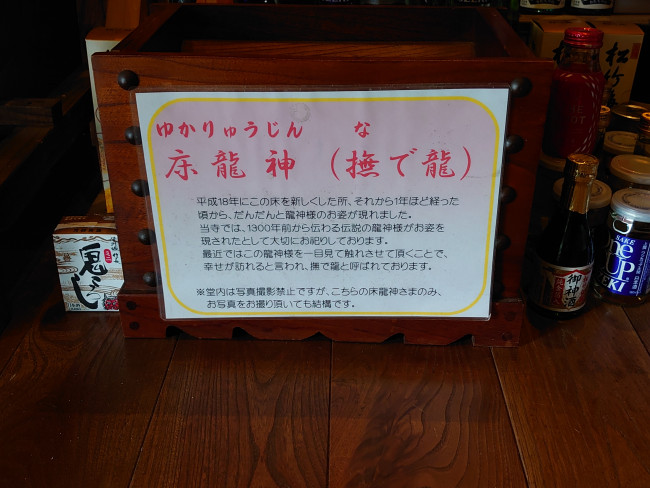 ゆかりゅうじん　な
床龍神（撫で龍）
平成18年にこの床を新しくした所、それから1年ほど経った
頃から、だんだんと龍神様のお姿が現れました。
当寺では、1300年前から伝わる伝説の龍神様がお姿を
現されたとして大切にお祀りしております。
最近ではこの龍神様を一目見て触れさせて頂くことで、
幸せが訪れると言われ、撫で龍と呼ばれております。
※堂内は写真撮影禁止ですが、こちらの床龍神さまのみ、
お写真をお撮り頂いても結構です。
松竹
御神酒
SAKE